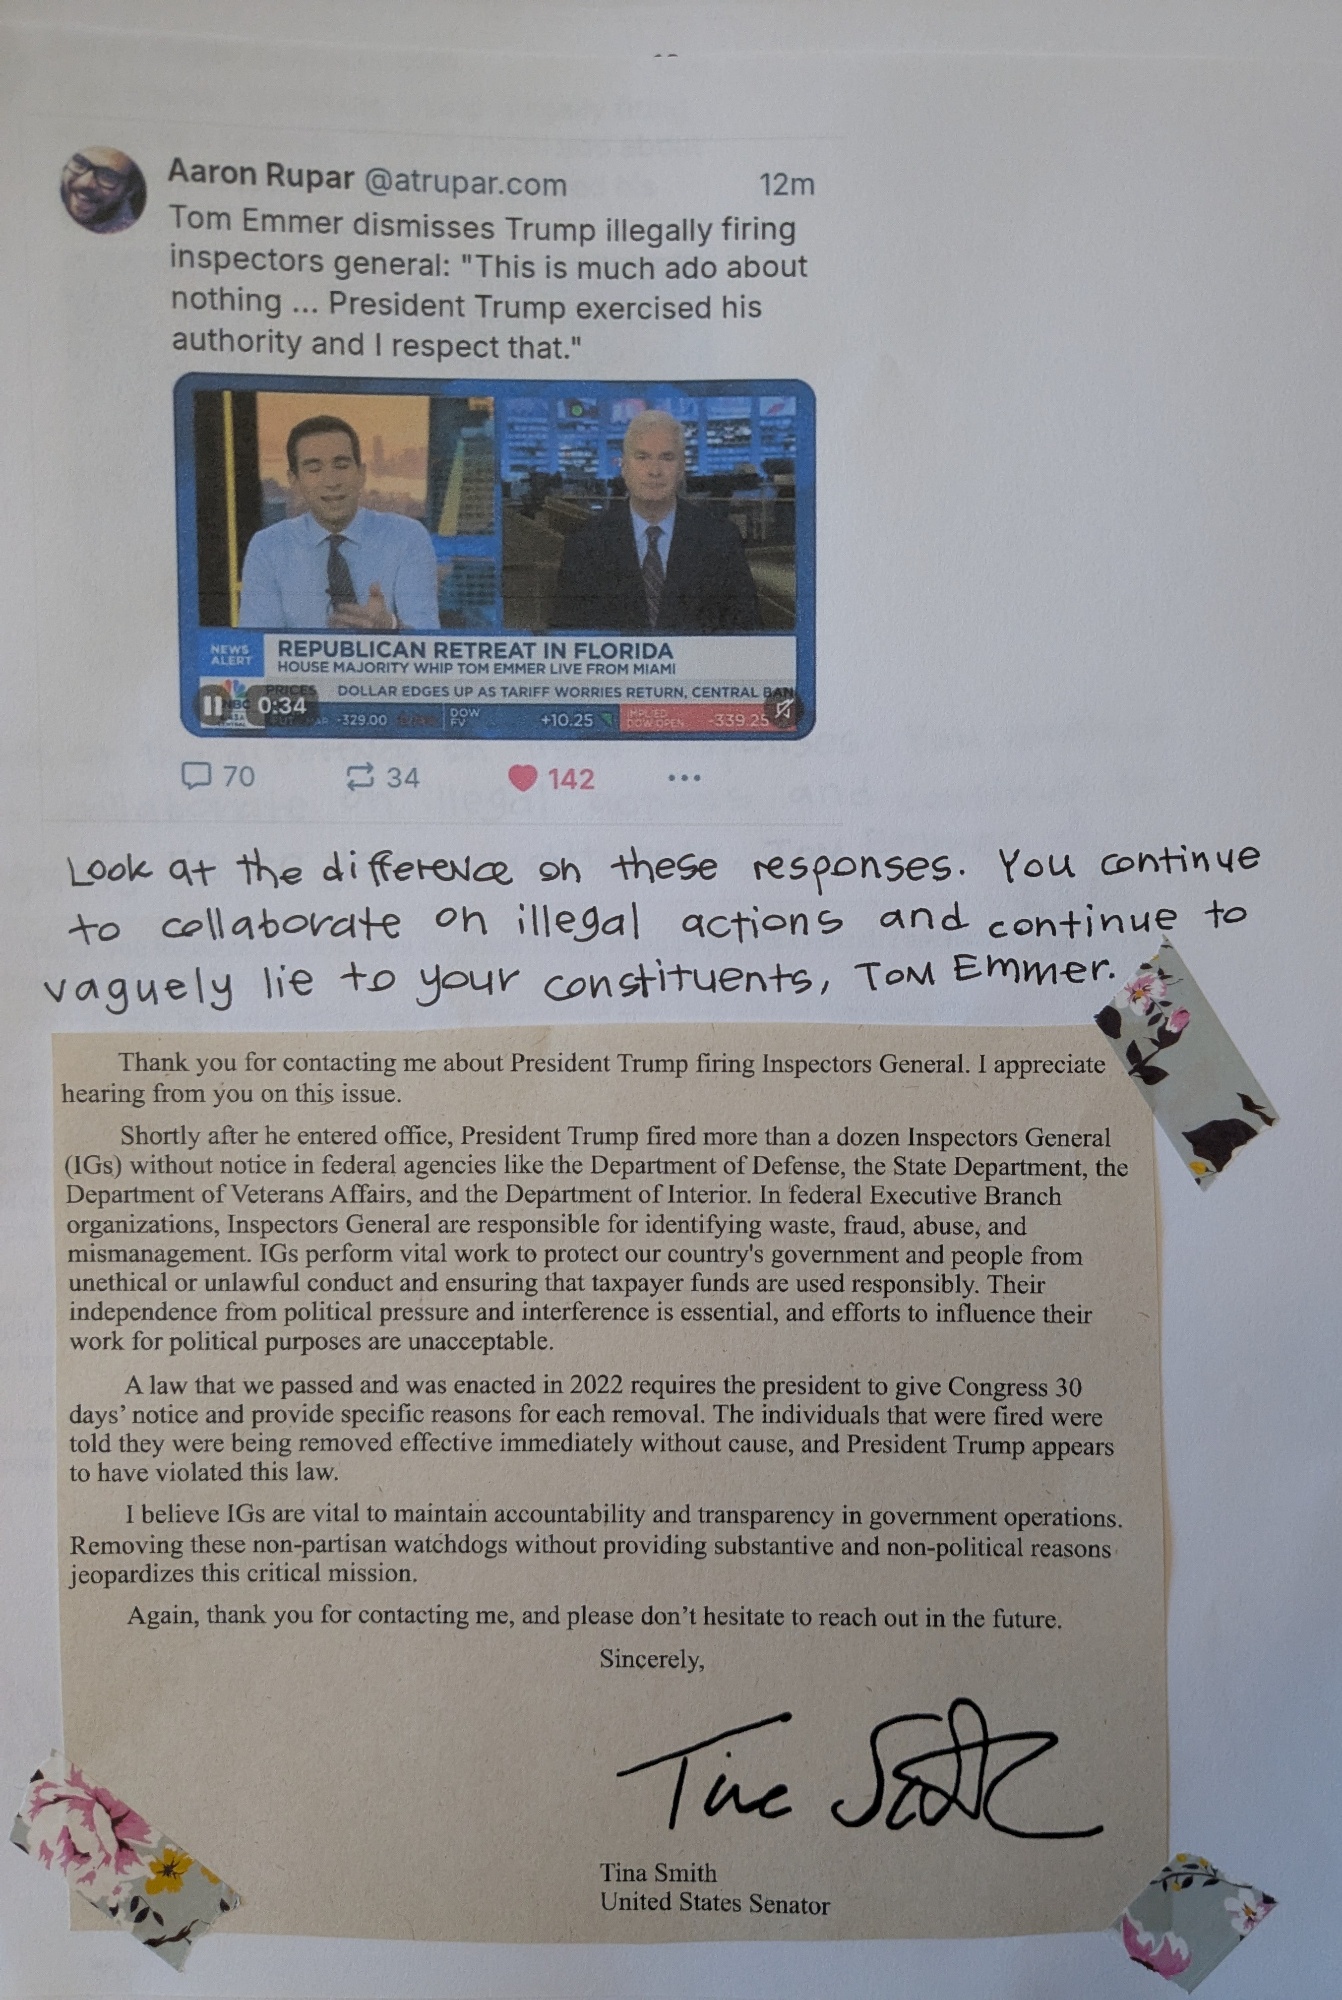 Aaron Rupar @atrupar.com 12m
Tom Emmer dismisses Trump illegally firing
inspectors general: "This is much ado about
nothing ... President Trump exercised his
authority and I respect that."
NEWS
ALERT
REPUBLICAN RETREAT IN FLORIDA
HOUSE MAJORITY WHIP TOM EMMER LIVE FROM MIAMI
PRICES DOLLAR EDGES UP AS TARIFF WORRIES RETURN, CENTRAL BAN
0:34
-329.00 DOW FV +10.25 IMPLIED DOW OPEN -339.25
70 34 142
Look at the difference on these responses. You continue
to collaborate on illegal actions and continue to
vaguely lie to your constituents, Tom Emmer.
Thank you for contacting me about President Trump firing Inspectors General. I appreciate
hearing from you on this issue.
Shortly after he entered office, President Trump fired more than a dozen Inspectors General
(IGs) without notice in federal agencies like the Department of Defense, the State Department, the
Department of Veterans Affairs, and the Department of Interior. In federal Executive Branch
organizations, Inspectors General are responsible for identifying waste, fraud, abuse, and
mismanagement. IGs perform vital work to protect our country's government and people from
unethical or unlawful conduct and ensuring that taxpayer funds are used responsibly. Their
independence from political pressure and interference is essential, and efforts to influence their
work for political purposes are unacceptable.
A law that we passed and was enacted in 2022 requires the president to give Congress 30
days’ notice and provide specific reasons for each removal. The individuals that were fired were
told they were being removed effective immediately without cause, and President Trump appears
to have violated this law.
I believe IGs are vital to maintain accountability and transparency in government operations.
Removing these non-partisan watchdogs without providing substantive and non-political reasons
jeopardizes this critical mission.
Again, thank you for contacting me, and please don’t hesitate to reach out in the future.
Sincerely,
Tina Smith
Tina Smith
United States Senator